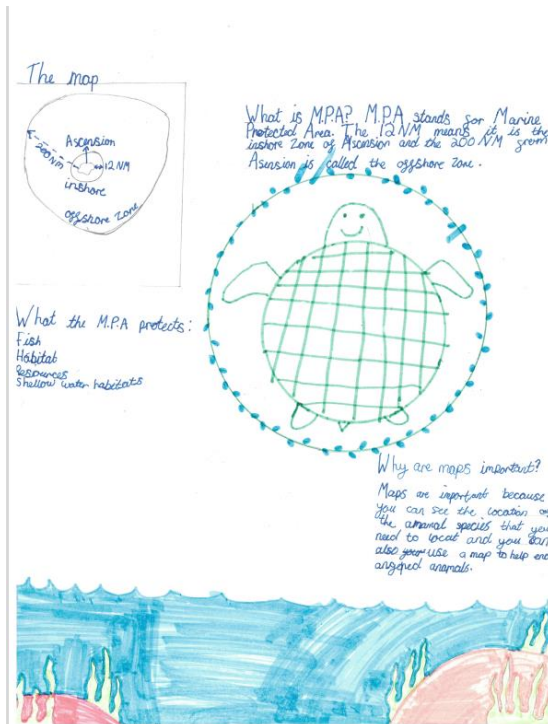 The map
Ascension
200 NM
12 NM
inshore
offshore zone
What is M.P.A? M.P.A stands for Marine
Protected Area. The 12 NM means it is the
inshore zone of Ascension and the 200 NM from
Asension is called the offshore zone.
What the M.P.A protects:
Fish
Habitat
Resources
Shallow water habitats
Why are maps important?
Maps are important because
you can see the location of
the amamal species that you
need to locat and you can
also use a map to help end
angered anamals.